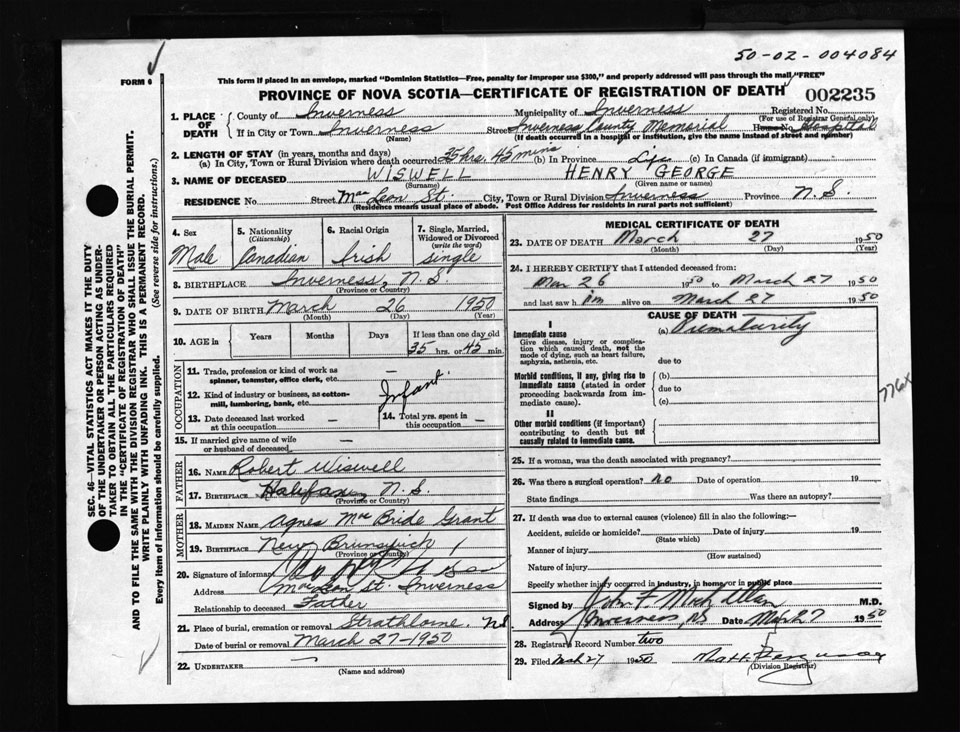 50-02-004084
FORM 6
This form if placed in an envelope, marked "Dominion Statistics—Free, penalty for improper use $300," and properly addressed will pass through the mail "FREE"
PROVINCE OF NOVA SCOTIA—CERTIFICATE OF REGISTRATION OF DEATH 002235
1. PLACE OF DEATH
County of Inverness Municipality of Inverness Registered No.
(For use of Registrar General only)
If in City or Town Inverness Street Inverness County Memorial House No. Hospital
(Name) (If death occurred in a hospital or institution, give the name instead of street and number)
2. LENGTH OF STAY (in years, months and days)
(a) In City, Town or Rural Division where death occurred 35 hrs. 45 mins (b) In Province Life (c) In Canada (if immigrant)
3. NAME OF DECEASED WISWELL HENRY GEORGE
(Surname) (Given name or names)
RESIDENCE No. Street Mac Lean St. City, Town or Rural Division Inverness Province N.S.
(Residence means usual place of abode. Post Office Address for residents in rural parts not sufficient)
4. Sex
Male
5. Nationality
(Citizenship)
Canadian
6. Racial Origin
Irish
7. Single, Married, Widowed or Divorced
(write the word)
single
8. BIRTHPLACE Inverness, N.S.
(Province or Country)
9. DATE OF BIRTH March 26 1950
(Month) (Day) (Year)
10. AGE in Years Months Days If less than one day old
35 hrs. or 45 min.
OCCUPATION
11. Trade, profession or kind of work as spinner, teamster, office clerk, etc. —
12. Kind of industry or business, as cotton-mill, lumbering, bank, etc. Infant
13. Date deceased last worked at this occupation —
14. Total yrs. spent in this occupation —
15. If married give name of wife or husband of deceased —
FATHER
16. NAME Robert Wiswell
17. BIRTHPLACE Halifax, N.S.
(Province or Country)
MOTHER
18. MAIDEN NAME Agnes Mac Bride Grant
19. BIRTHPLACE New Brunswick
(Province or Country)
20. Signature of informant
Address Mac Lean St. Inverness
Relationship to deceased Father
21. Place of burial, cremation or removal Strathlorne. N.S
Date of burial or removal March 27-1950
22. UNDERTAKER —
(Name and address)
MEDICAL CERTIFICATE OF DEATH
23. DATE OF DEATH March 27 1950
(Month) (Day)
24. I HEREBY CERTIFY that I attended deceased from:
Mar 26 1950 to March 27 1950
and last saw him alive on March 27 1950
CAUSE OF DEATH
I
Immediate cause (a) Prematurity
Give disease, injury or complication which caused death, not the mode of dying, such as heart failure, asphyxia, asthenia, etc.
due to
Morbid conditions, if any, giving rise to immediate cause (stated in order proceeding backwards from immediate cause).
(b)
due to
(c)
II
Other morbid conditions (if important) contributing to death but not causally related to immediate cause.
776x
25. If a woman, was the death associated with pregnancy?
26. Was there a surgical operation? No Date of operation 19
State findings Was there an autopsy?
27. If death was due to external causes (violence) fill in also the following:—
Accident, suicide or homicide? Date of injury 19
(State which)
Manner of injury
(How sustained)
Nature of injury
Specify whether injury occurred in industry, in home, or in public place
Signed by John F. M.D.
Address Inverness, NS Date Mar 27 1950
28. Registrars Record Number two
29. Filed Mch 27 1950 Matt. Ferguson
(Division Registrar)
SEC. 46—VITAL STATISTICS ACT MAKES IT THE DUTY
OF THE UNDERTAKER OR PERSON ACTING AS UNDER-
TAKER TO OBTAIN ALL THE PARTICULARS REQUIRED
IN THE "CERTIFICATE OF REGISTRATION OF DEATH"
AND TO FILE THE SAME WITH THE DIVISION REGISTRAR WHO SHALL ISSUE THE BURIAL PERMIT.
WRITE PLAINLY WITH UNFADING INK. THIS IS A PERMANENT RECORD.
Every item of information should be carefully supplied. (See reverse side for instructions.)